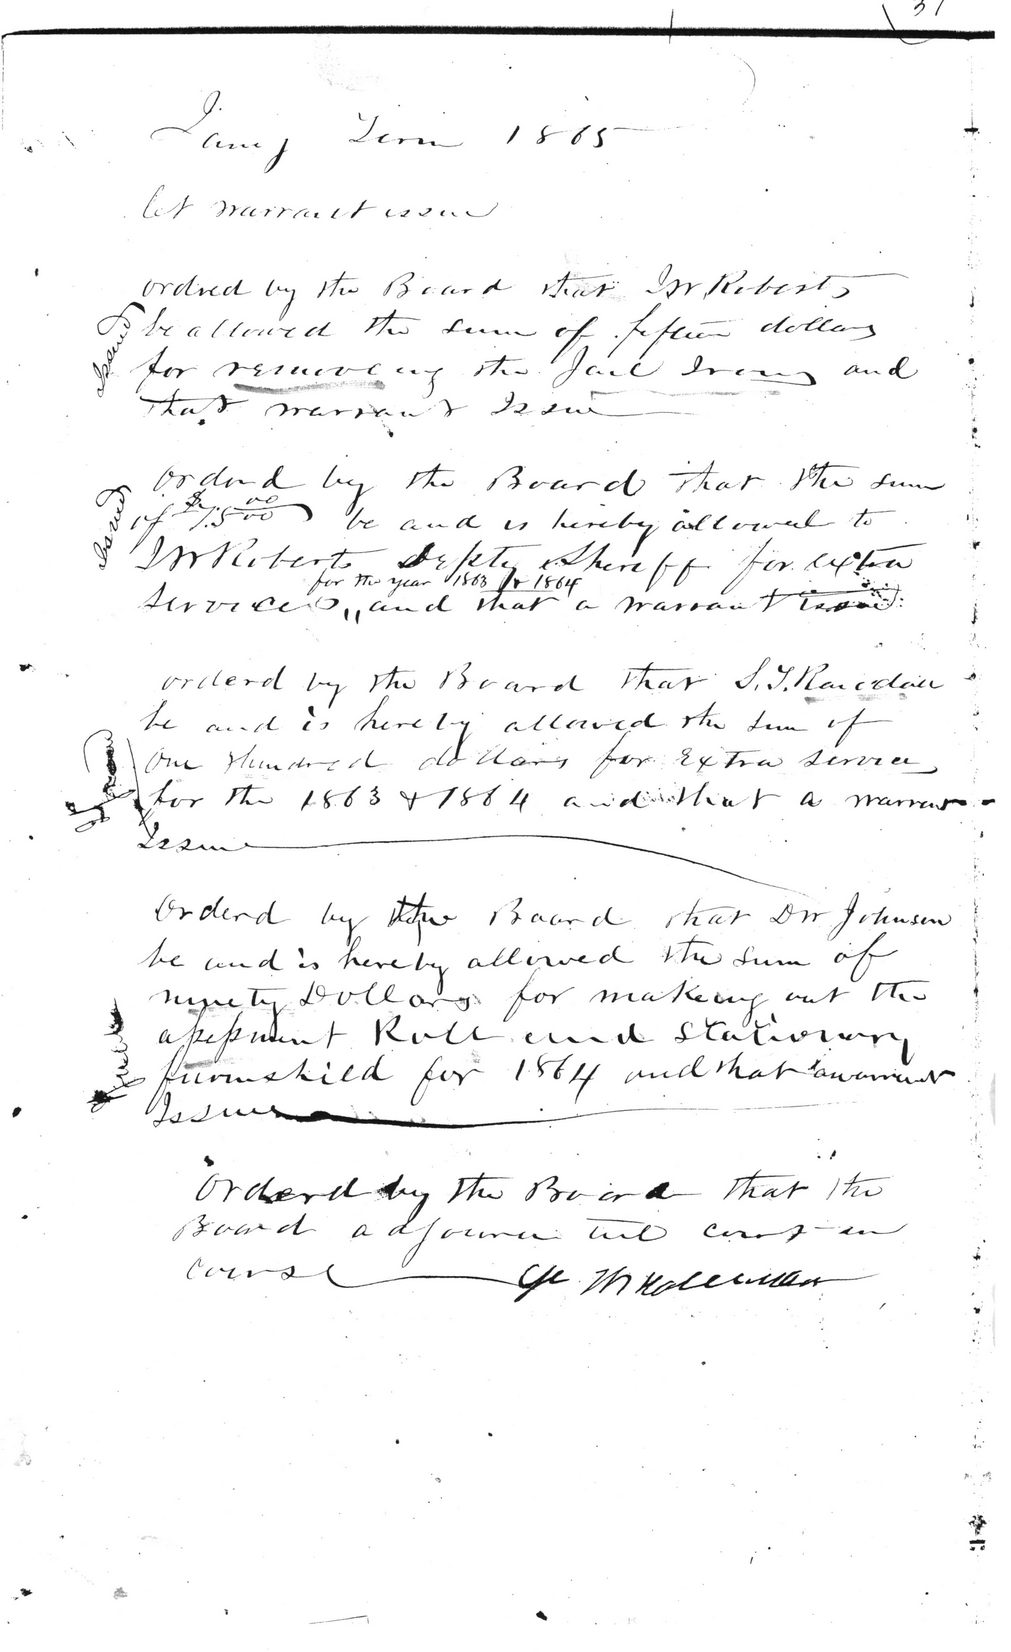 31
Jany Term 1865
let warrant issue
ordred by the Board that JW Roberts
Issued
be allowed the sum of fifteen dollars
for removeing the Jail Irons and
that warrant Issue
ordord by the Board that the sum
Issued
of $75 00/00 be and is hereby allowed to
JW Roberts Depty Sheriff for extra
for the year 1863 & 1864
services " and that a warrant issue
orderd by the Board that S.T. Ransdall
be and is hereby allowed the sum of
one Hundred dollars for Extra services
Issued
for the 1863 & 1864 and that a warrant
Issue
Orderd by the Board that DW Johnson
be and is hereby allowed the sum of
ninety Dollars for makeing out the
Issued
assessment Roll and Stationary
furnishied for 1864 and that a warrant
Issue
Orderd by the Board that the
Board adjourn till court in
course